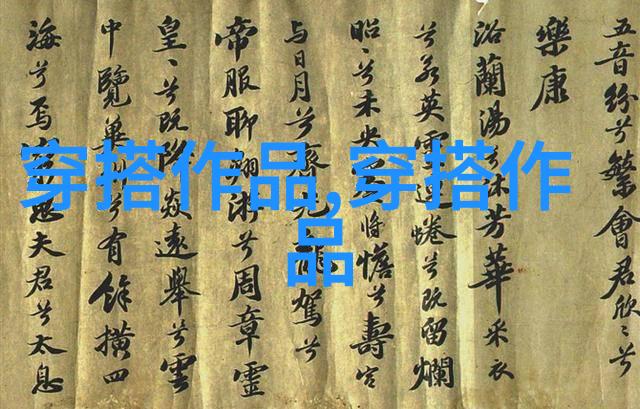 五音紛兮繁會君欣〻兮
樂康
浴蘭湯兮沐芳華采衣
兮若英靈連蜷兮既留爛
昭〻兮未央將憺兮壽宮
与日月兮齊光龍駕兮
帝服聊翱游兮周章靈
皇〻兮既降猋遠舉兮雲
中覽冀州兮有餘橫四
海兮焉思夫君兮太息
穿搭作品,穿搭作
品